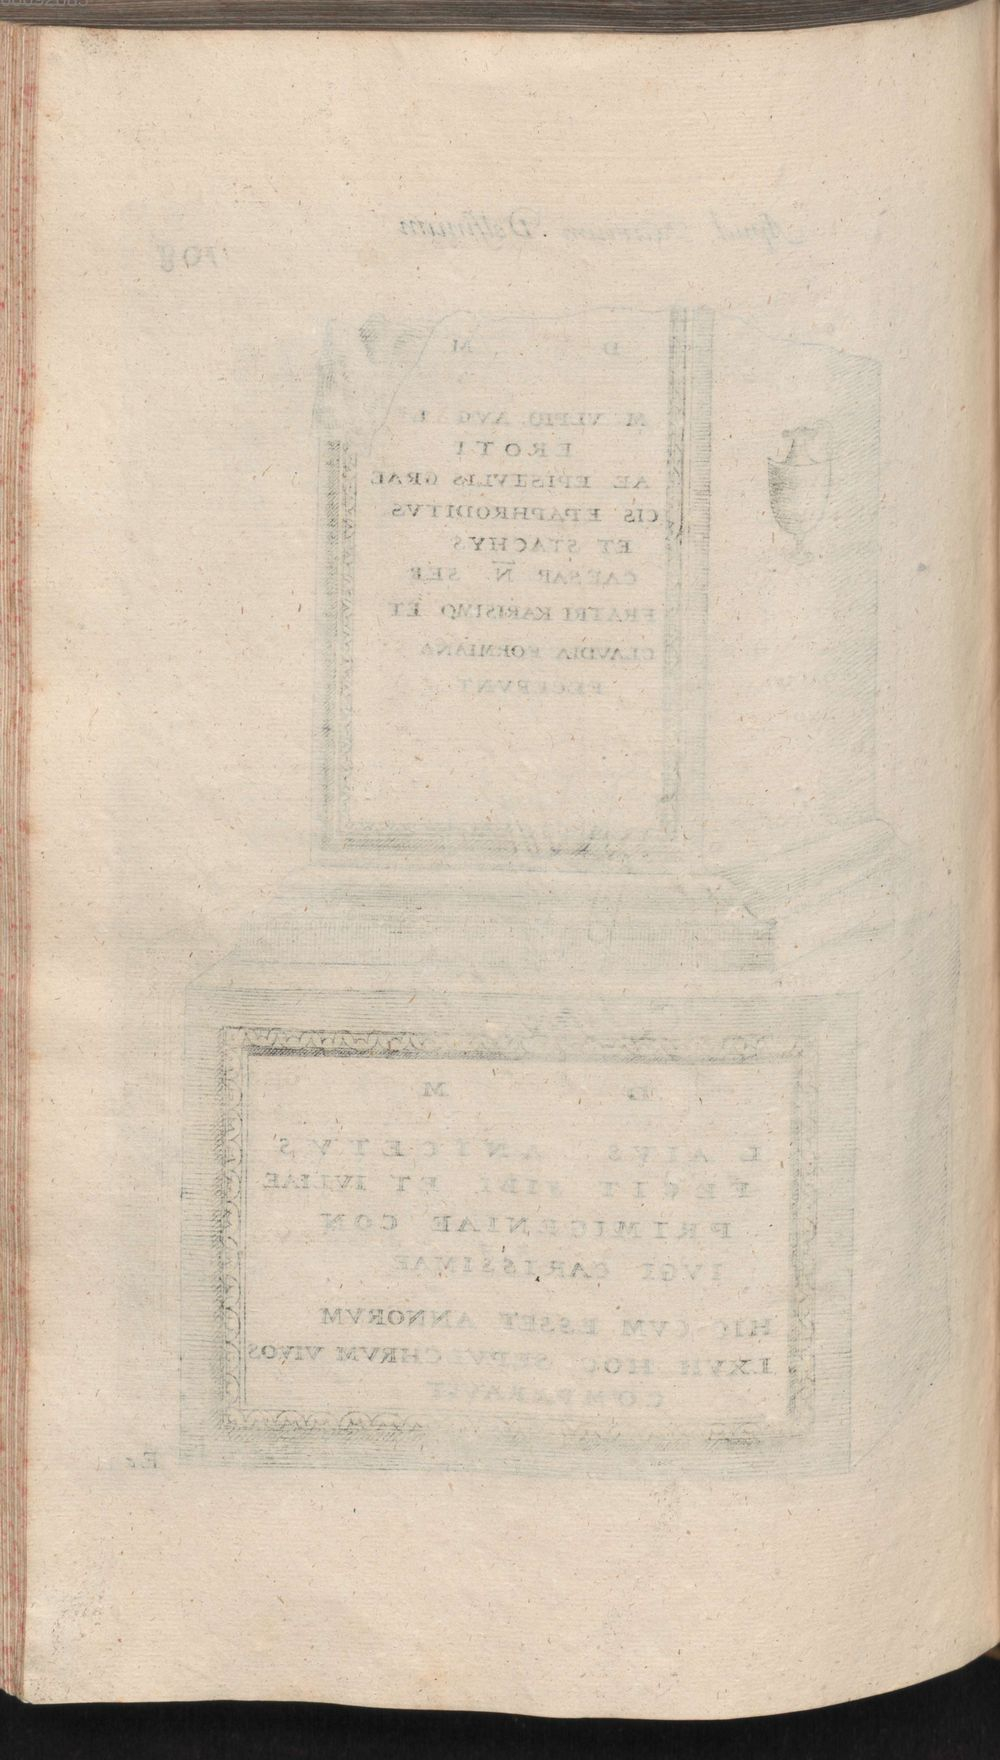 108
D M
M VLPIO AVG L
EROTI
AB EPISTVLIS GRAE
CIS EPAPHRODITVS
ET STACHYS
CAESAR N SER
FRATRI KARISIMO ET
CLAVDIA FORMIANA
FECERVNT
D M
L AIVS ANICETVS
FECIT SIBI ET IVLIAE
PRIMIGENIAE CON
IVGI CARISSIMAE
HIC CVM ESSET ANNORVM
LXVII HOC SEPVLCHRVM VIVOS
COMPARAVIT